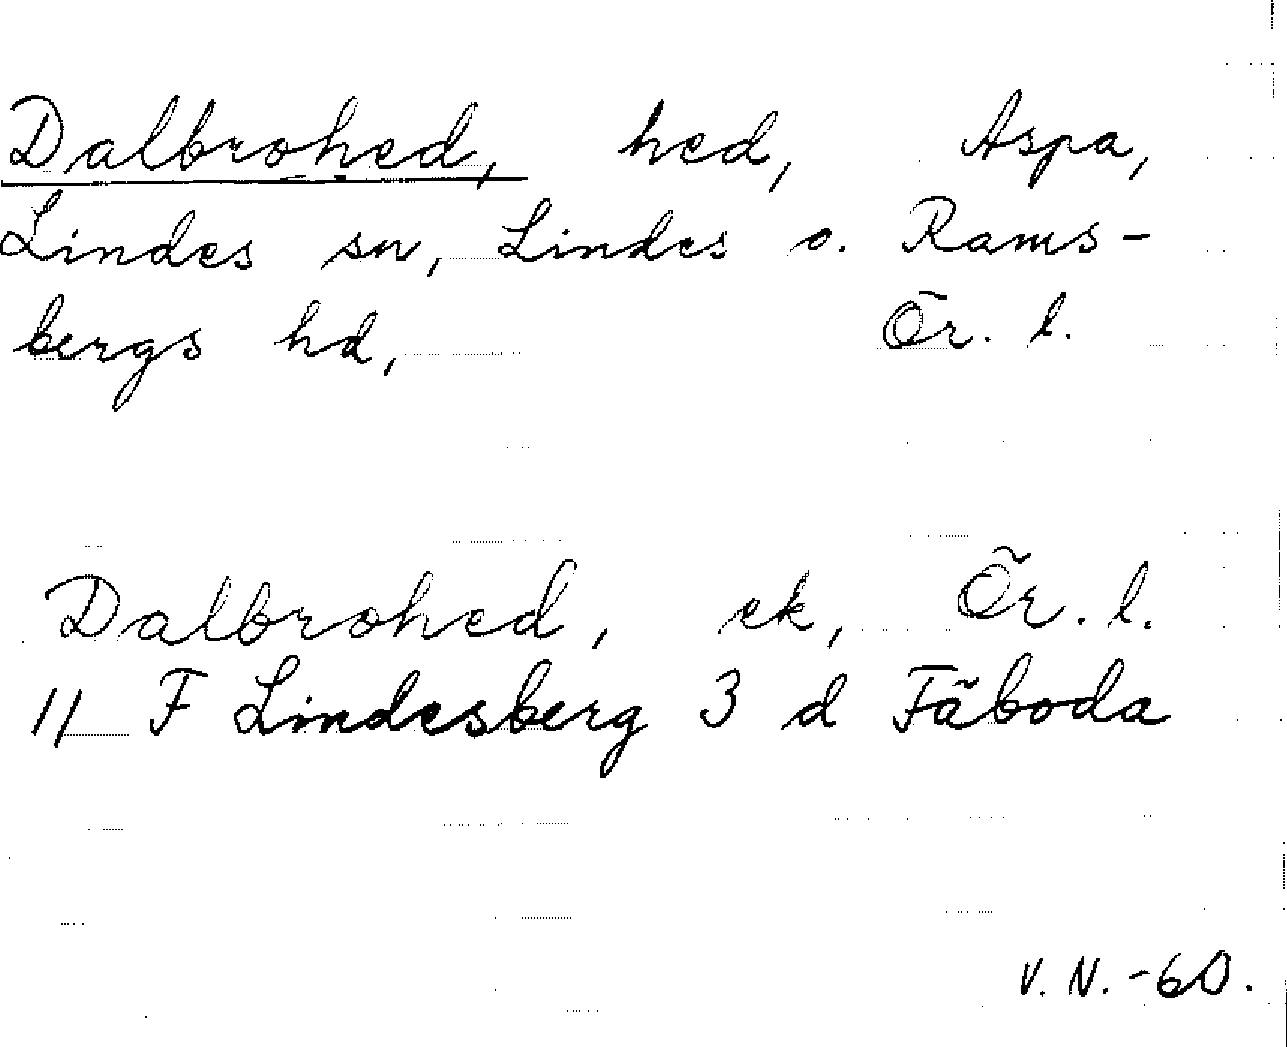 Dalbrohed, hed, Aspa,
Lindes sn, Lindes o. Rams-
bergs hd, Ör. l.
Dalbrohed, ek, Ör. l.
11 F Lindesberg 3 d Fäboda
V. N. -60.